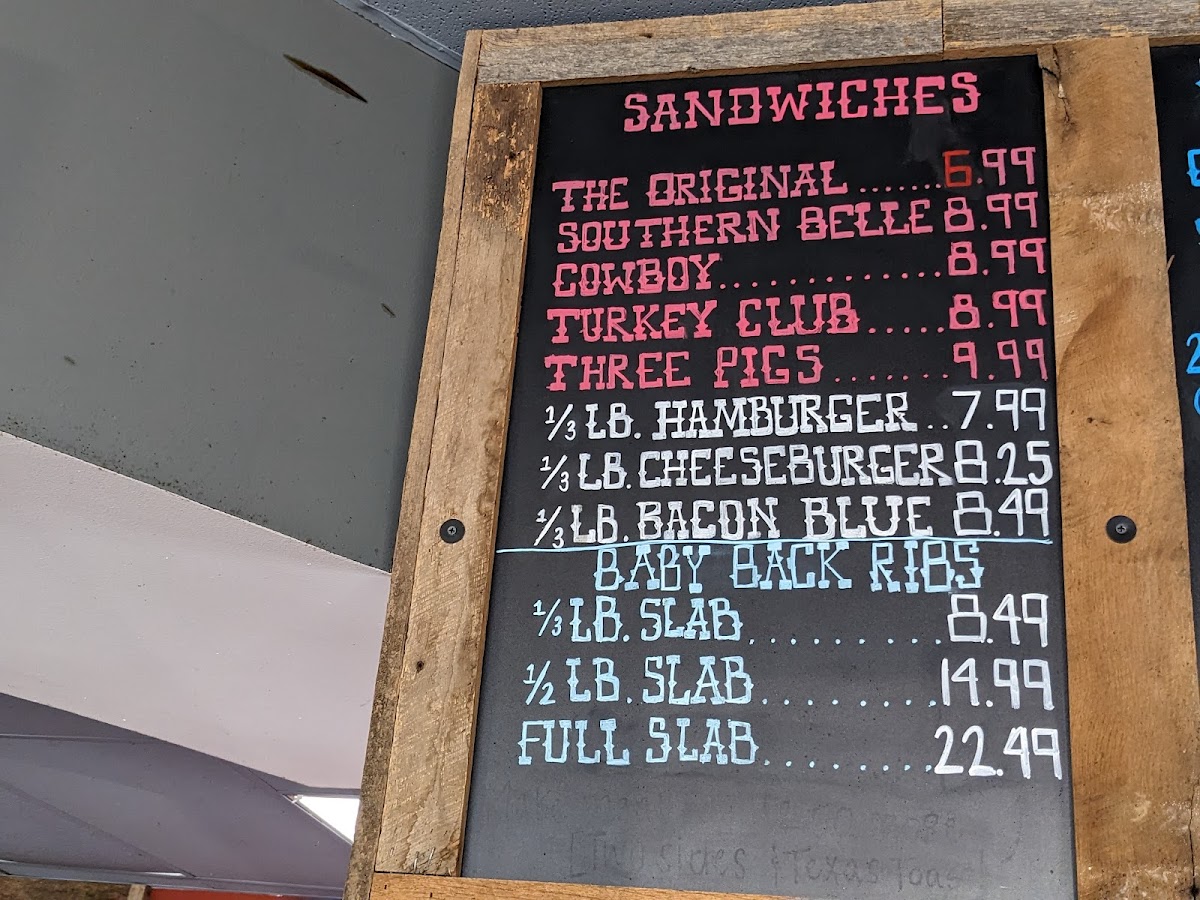 SANDWICHES
THE ORIGINAL .......6.99
SOUTHERN BELLE 8.99
COWBOY..............8.99
TURKEY CLUB.....8.99
THREE PIGS........9.99
1/3 LB. HAMBURGER..7.99
1/3 LB. CHEESEBURGER 8.25
1/3 LB. BACON BLUE 8.49
BABY BACK RIBS
1/3 LB. SLAB..........8.49
1/2 LB. SLAB.........14.99
FULL SLAB.........22.49
Two sides & Texas Toast